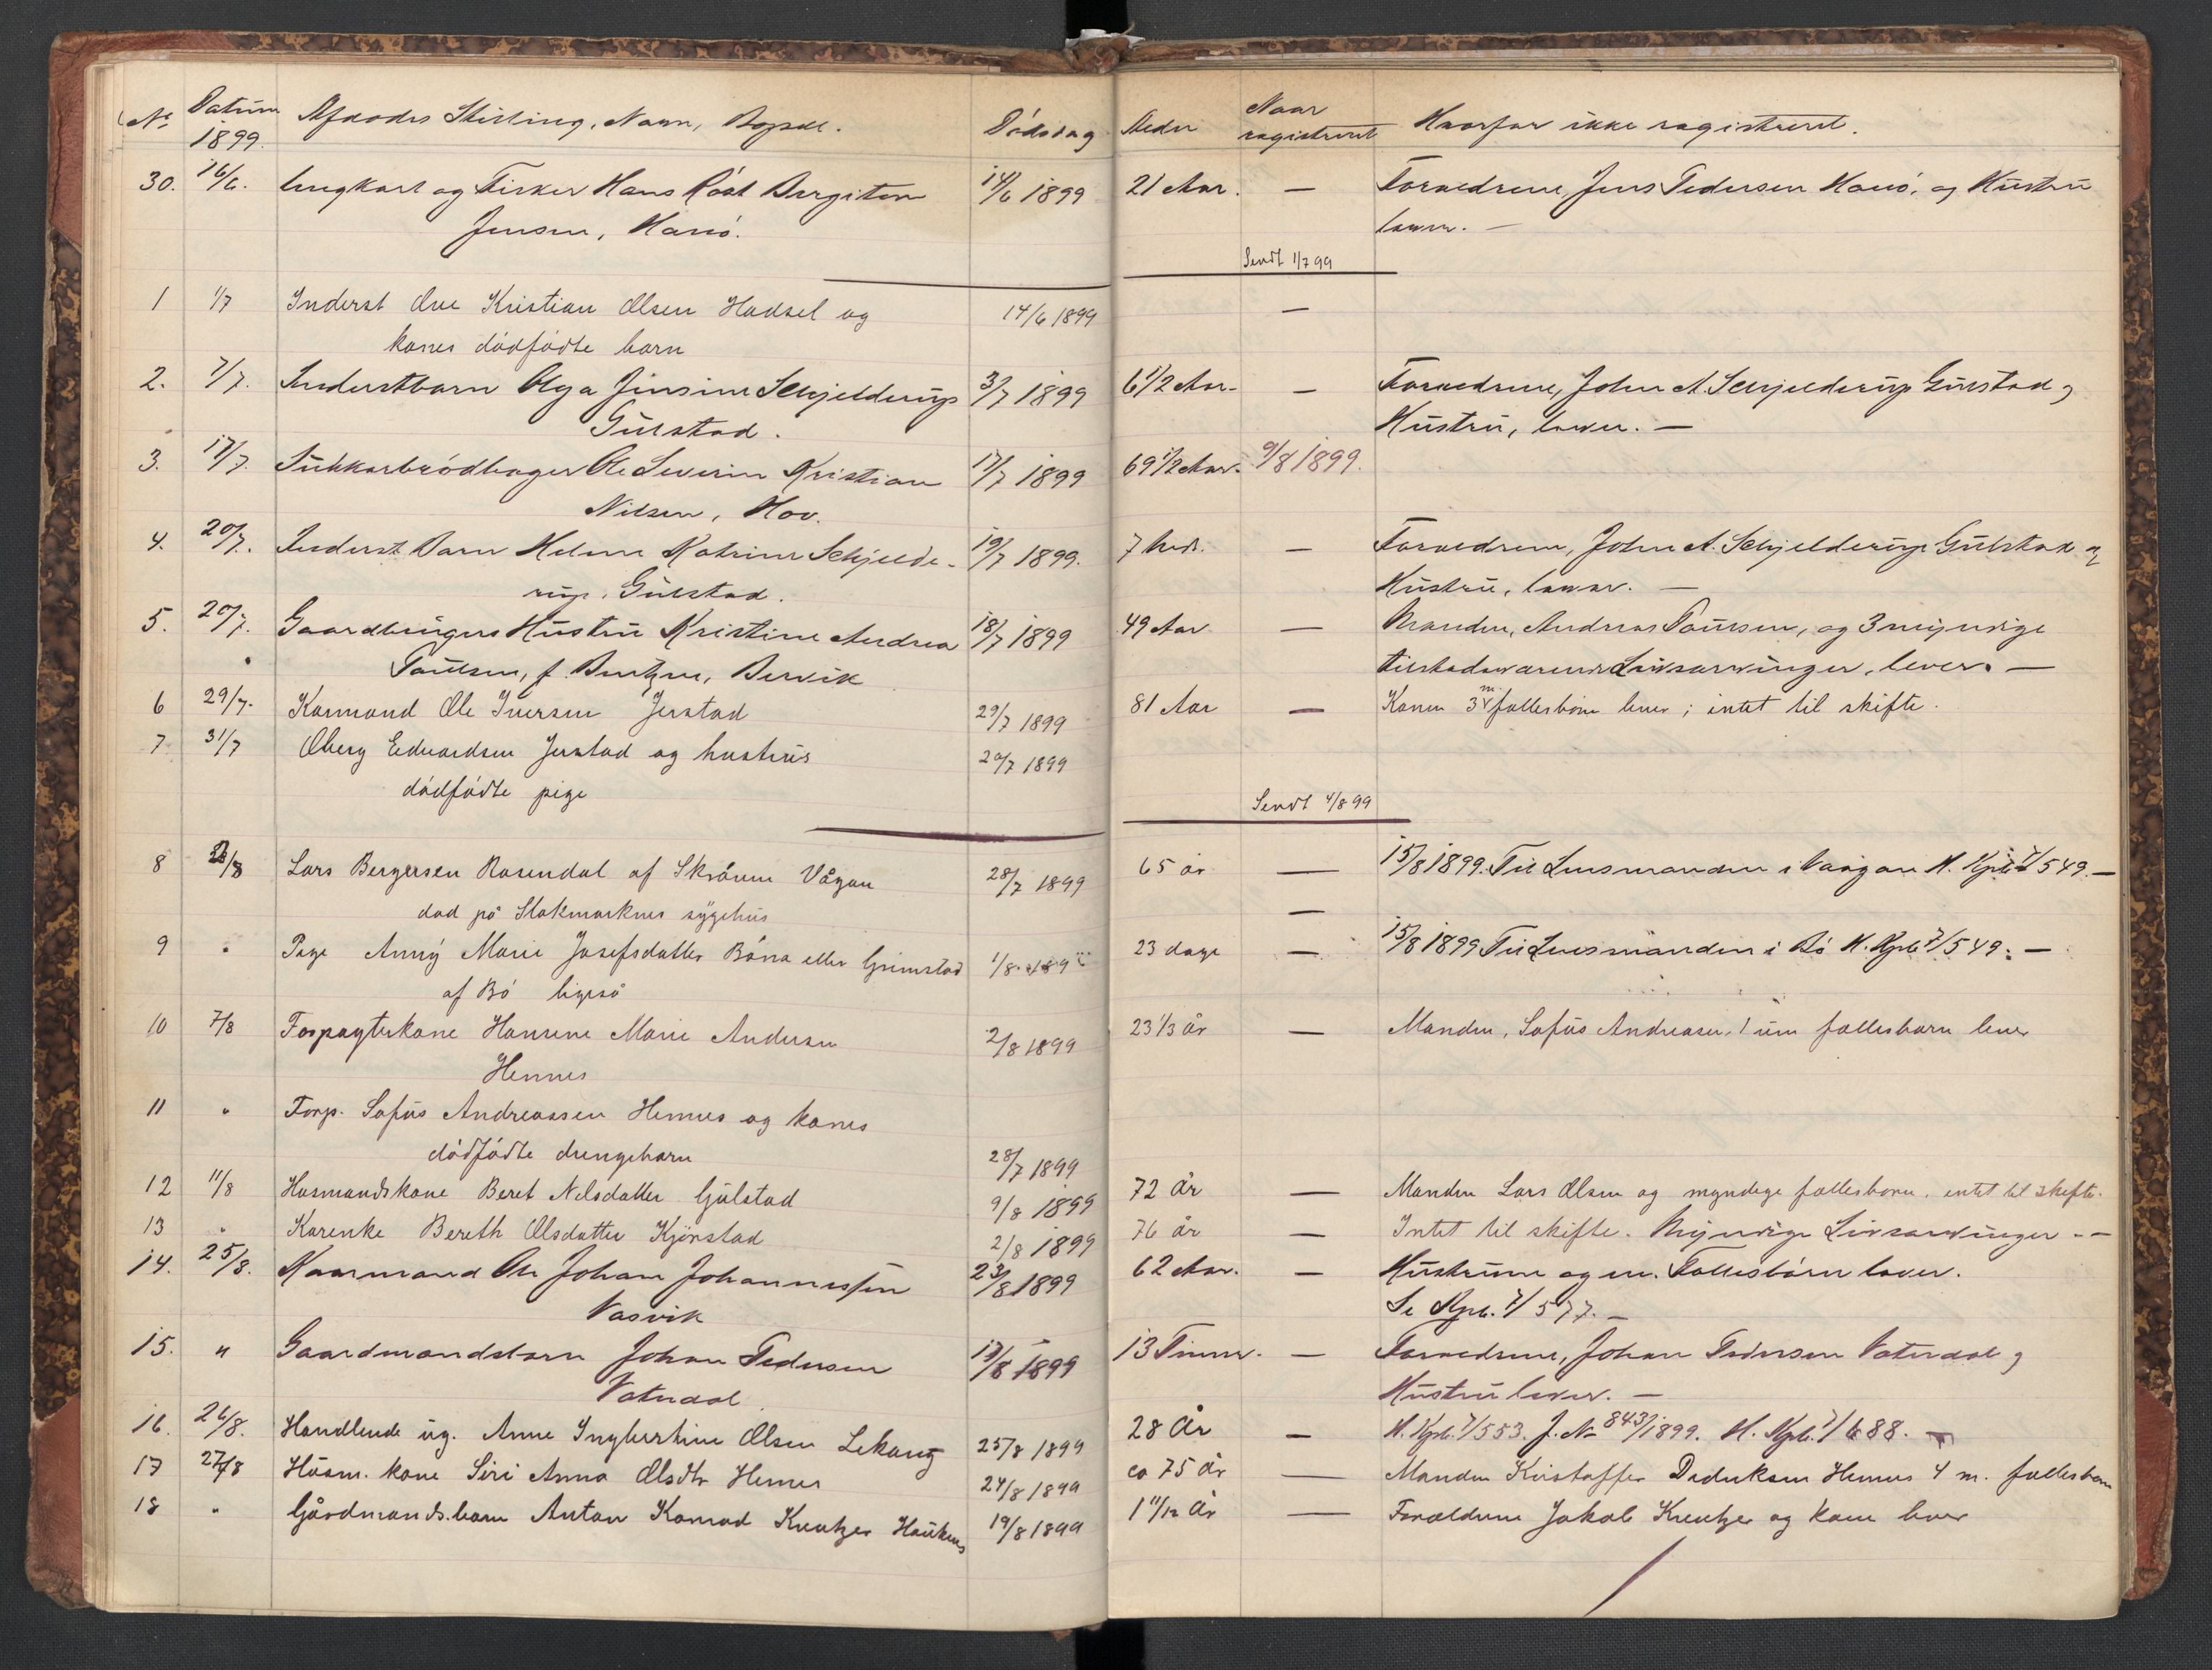 No Datum 1899. Afdødes Stilling, Navn, Bopæl. Dødsdag Alder Naar registreret Hvorfor ikke registreret.
30. 16/6. Ungkarl og Fisker Hans Røst Bergiton 14/6 1899 21 Aar. — Forældrene, Jens Pedersen Hanø, og Hustru
Jensen, Hanø. lever. —
Sendt 1/7 99
1 1/7 Inderst Ove Kristian Olsen Hadsel og 14/6 1899 —
kones dødfødte barn
2. 7/7. Inderstbarn Olga Jensine Schjelderup 3/7 1899 6 1/2 Aar — Forældrene, John A. Schjelderup Gulstad og
Gulstad. Hustru, lever. —
3. 17/7. Sukkerbrødbager Ole Severin Kristian 17/7 1899 69 1/2 Aar. 9/8 1899.
Nilsen, Hov.
4. 20/7. Inderst Barn Helene Katrine Schjelde- 19/7 1899. 7 — Forældrene, John A. Schjelderup Gulstad og
rup, Gulstad. Hustru, lever. —
5. 20/7. Gaardbrugers Hustru Kristine Andrea 18/7 1899 49 Aar — Manden, Andreas Paulsen, og 3 myndige
Paulsen, f. Bentzen, Bervik tilstedeværende Livsarvinger, lever. —
6 29/7. Kaarmand Ole Iversen Jerstad 29/7 1899 81 Aar — Konen 3 m fællesbørn lever; intet til skifte.
7 31/7 Oberg Edvardsen Jerstad og hustrus 20/7 1899
dødfødte pige
Sendt 4/8 99
8 2/8 Lars Bergersen Rosendal af Skråven Vågan 28/7 1899 65 år — 15/8 1899. Til Lensmanden i Vaagan H. Kpb. 7/549. —
død på Stokmarknes sygehus —
9 " Pige Anny Marie Josefsdatter Bøna eller Grimstad 1/8 23 dage — 15/8 1899 Til Lensmanden i Bø H. Kpb. 7/549. —
af Bø ligeså
10 7/8 Forpagterkone Hansine Marie Andersen 2/8 1899 23 1/3 år — Manden, Sofus Andreasen, 1 um fællesbarn lever
Hennes
11 " Forp. Sofus Andreassen Hennes og kones
dødfødte drengebarn 28/7 1899
12 11/8 Husmandskone Beret Nilsdatter Gulstad 9/8 1899 72 år — Manden Lars Olsen og myndige fællesbørn, intet til skifte.
13 " Kårenke Bereth Olsdatter Kjørstad 2/8 1899 76 år — Intet til skifte. Myndige Livsarvinger. —
14. 25/8. Kaarmand Ole Johan Johannessen 23/8 1899 62 Aar. — Hustruen og m. Fællesbørn lever.
Vasvik Se Kpb. 7/577. —
15. " Gaardmandsbarn Johan Pedersen 13/8 1899 13 Timer. — Forældrene, Johan Pedersen Vatndal og
Vatndal Hustru lever. —
16. 26/8. Handlende ug. Anne Ingbertine Olsen Lekang 25/8 1899 28 År — H. Kpb. 7/553. J. No 843/1899. H. Kpb. 7/688. —
17 27/8 Husm. kone Siri Anna Olsdtr Hennes 24/8 1899 ca 75 år — Manden Kristoffer Dideriksen Hennes 4 m. fællesbørn
18 " Gårdmands.barn Anton Konrad Kreutzer Haukenes 19/8 1899 1 11/12 år — Forældrene Jakob Kreutzer og kone lever